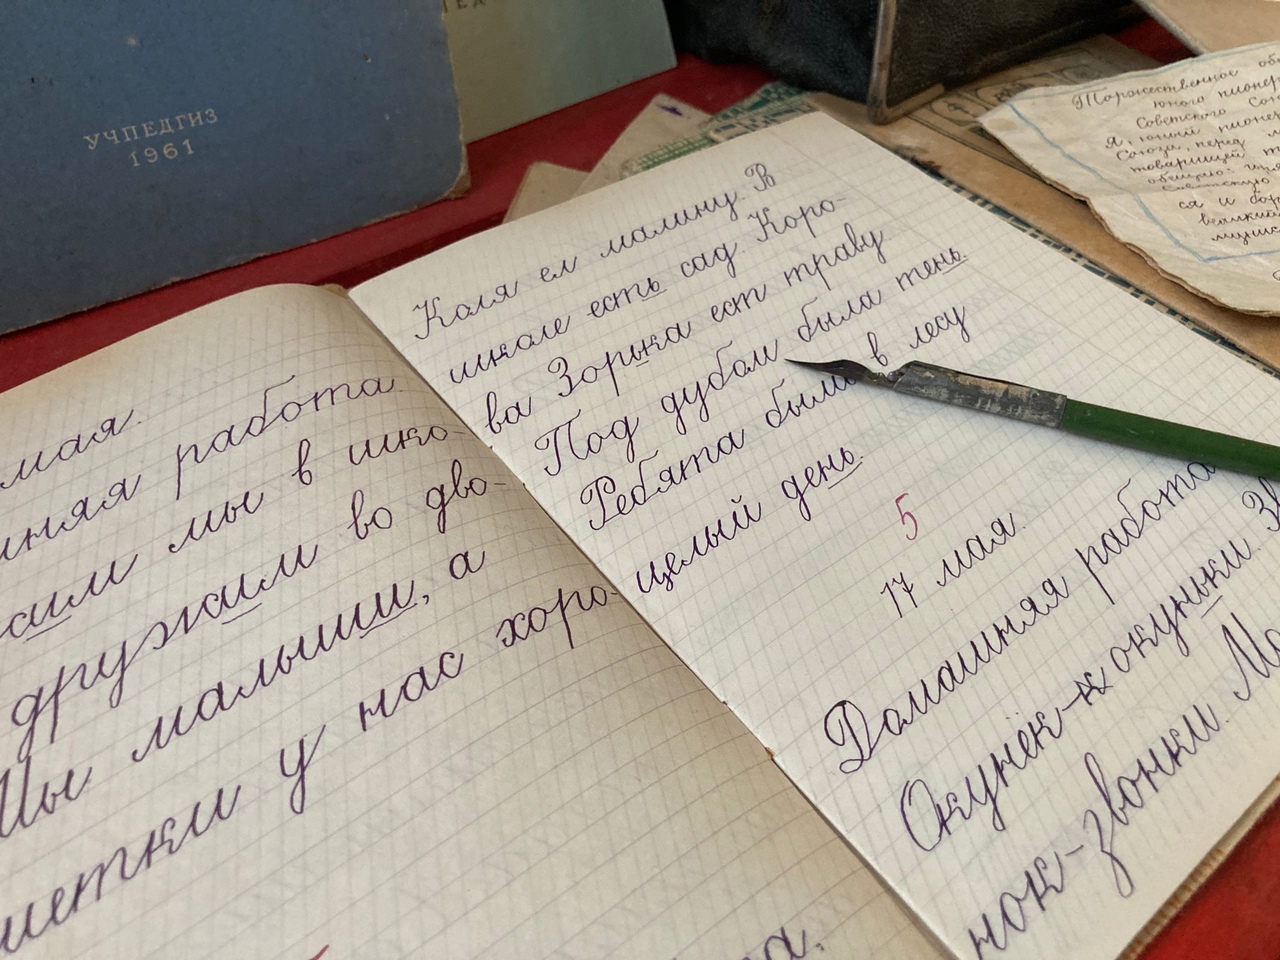 УЧПЕДГИЗ
1961
мая.
работа.
мы в шко-
дружим во дво-
Мы малыши, а
у нас хоро-
Коля ел малину. В
школе есть сад. Коро-
ва Зорька ест траву
Под дубом была тень.
Ребята были в лесу
целый день.
5
17 мая.
Домашняя работа
Окунёк-окуньки. Зв
нок-звонки. Ма
Торжественное
юного пионер
Советского Сою
Я, юный пионер
Союза, перед
товарищей
обещаю:
Советскую
ся и бор
великий